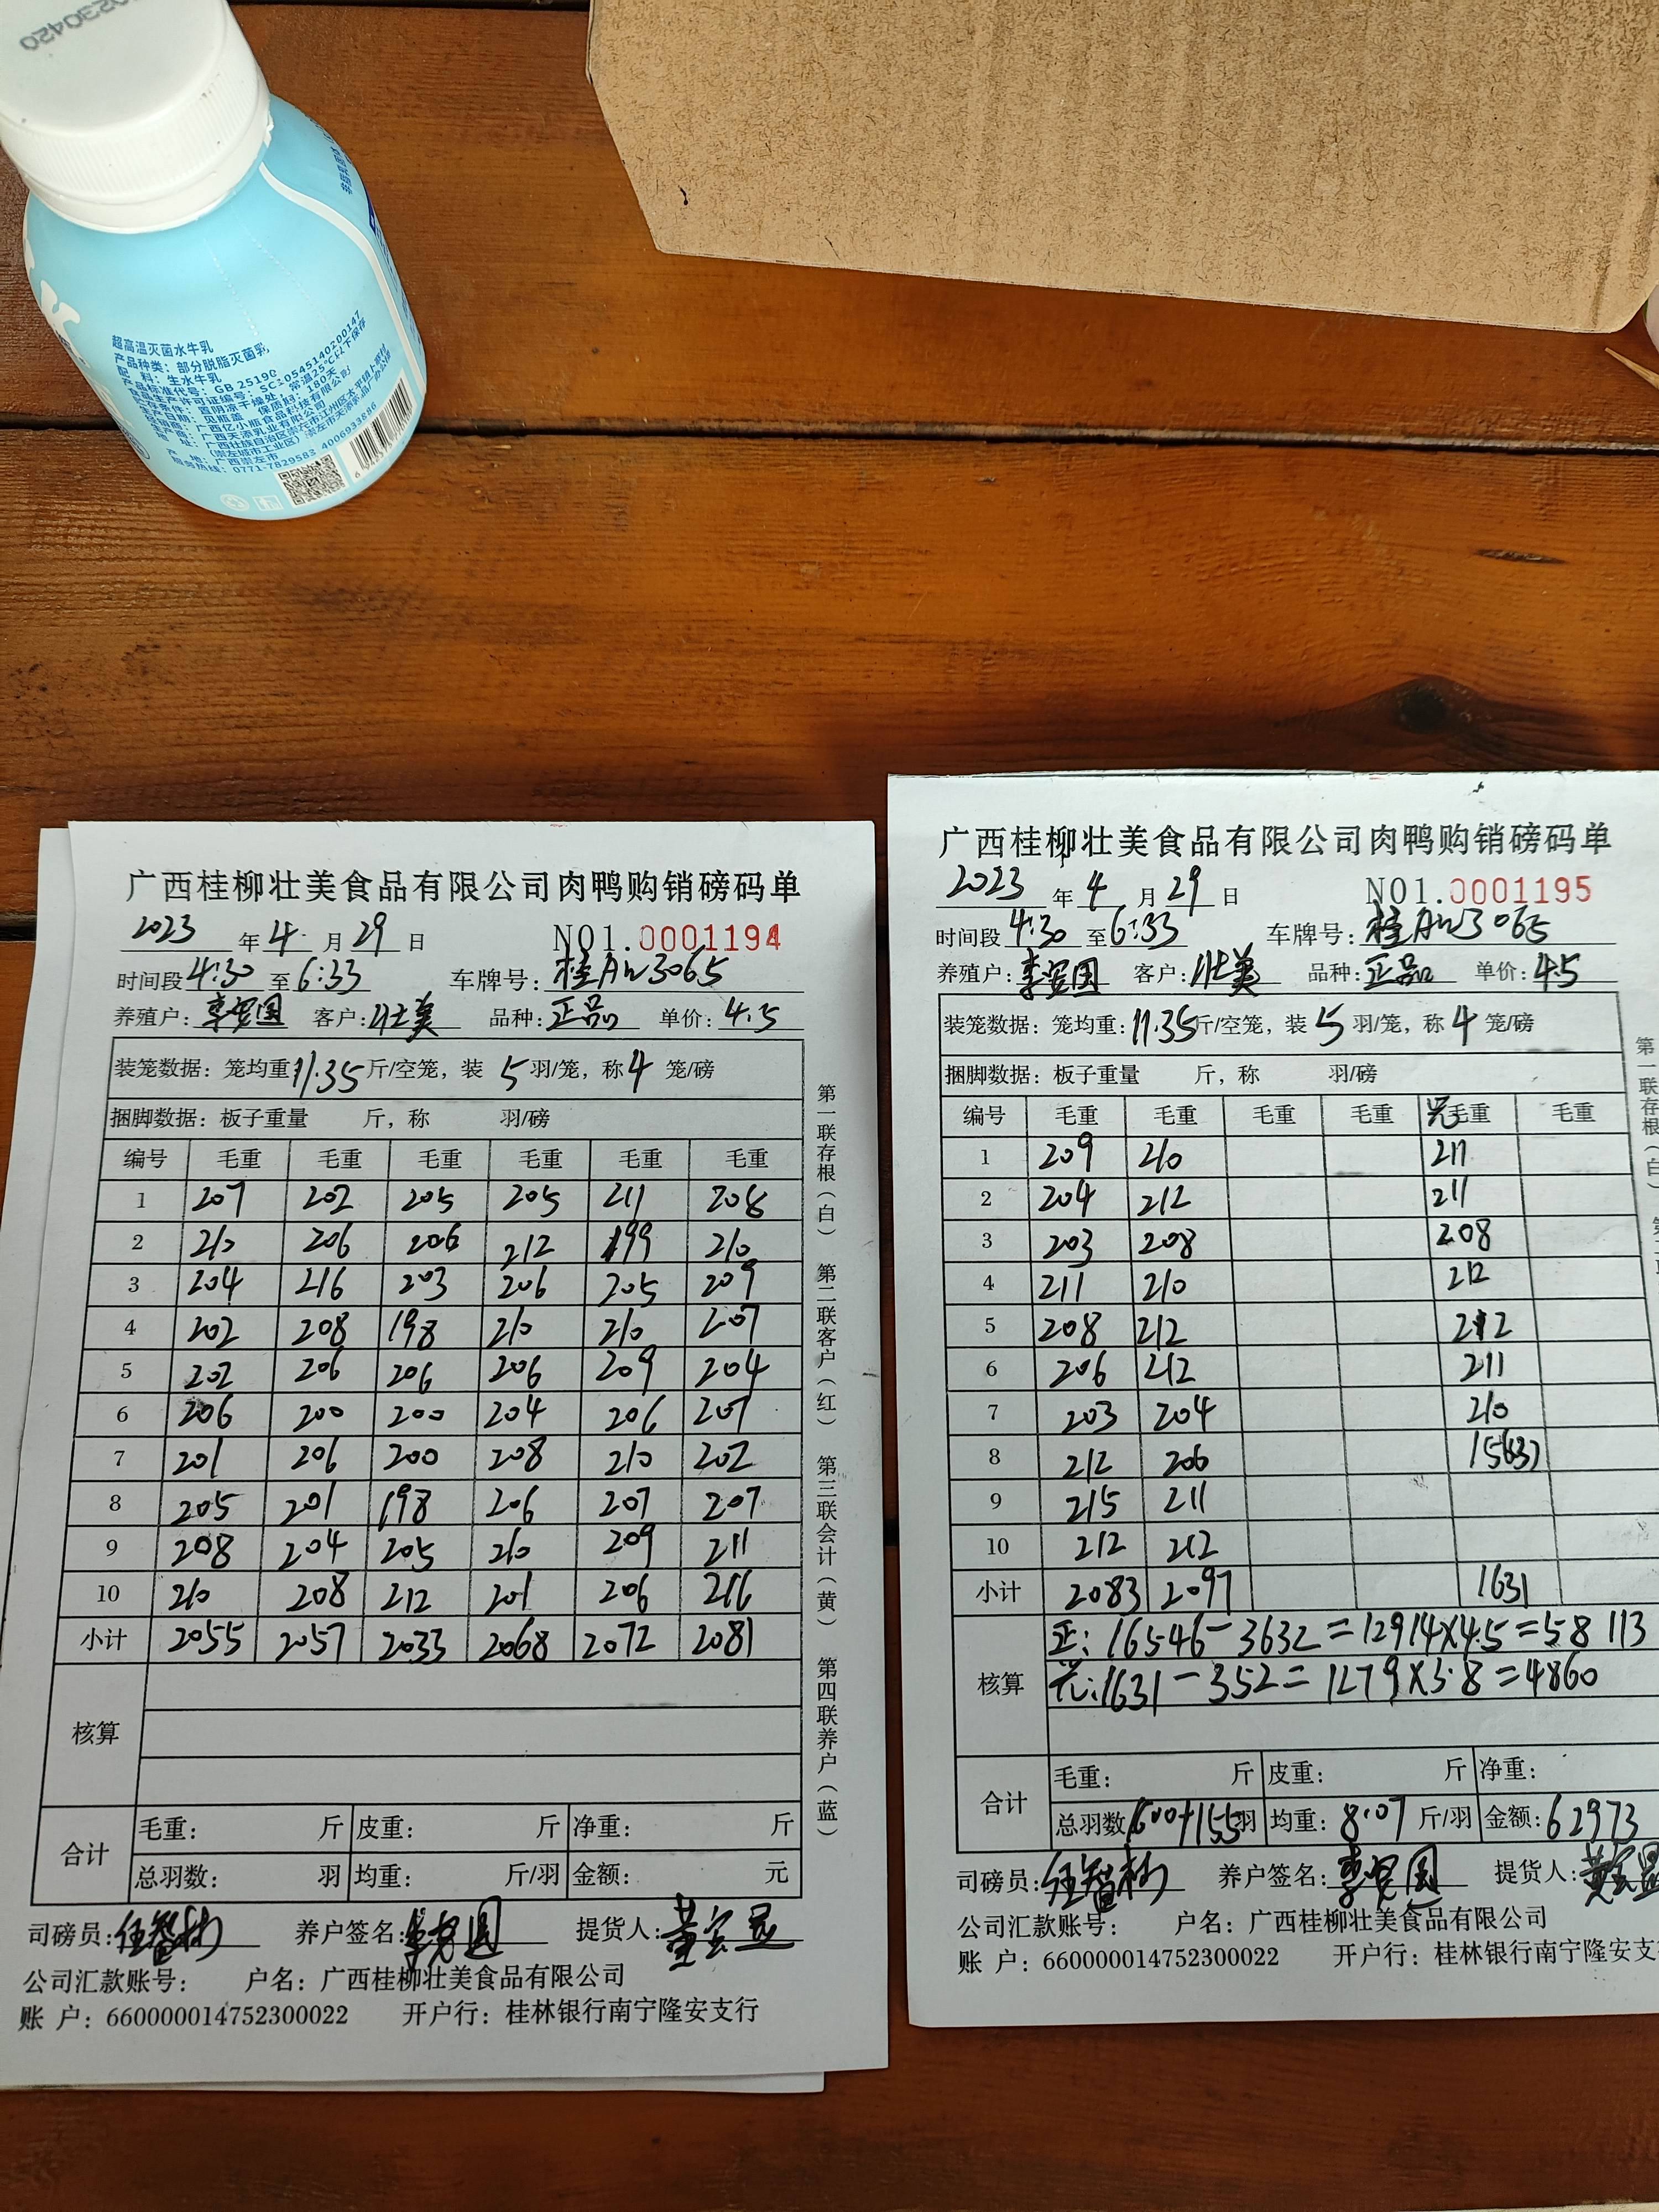 20230420
超高温灭菌水牛乳
产品种类：部分脱脂灭菌乳
配 料：生水牛乳
产品标准代号：GB 25190
食品生产许可证编号：SC10545140200147
贮存条件：置阴凉干燥处，常温25℃以下保存
生产日期：见瓶盖 保质期：180天
广西亿小脂食品科技有限公司
广西天添乳业有限公司
产 地：广西崇左市
服务热线：0771-7829583 4006933886
广西桂柳壮美食品有限公司肉鸭购销磅码单
2023 年 4 月 29 日 NO1.0001194
时间段 4:30 至 6:33 车牌号：桂AW3065
养殖户：李罗国 客户：壮美 品种：正品 单价：4.5
装笼数据：笼均重 11.35 斤/空笼，装 5 羽/笼，称 4 笼/磅
捆脚数据：板子重量 斤，称 羽/磅
编号 毛重 毛重 毛重 毛重 毛重 毛重
1 207 202 205 205 211 208
2 210 206 206 212 199 210
3 204 216 203 206 205 209
4 202 208 198 210 210 207
5 202 206 206 206 209 204
6 206 200 200 204 206 207
7 201 206 200 208 210 202
8 205 201 198 206 207 207
9 208 204 205 210 209 211
10 210 208 212 201 206 216
小计 2055 2057 2033 2068 2072 2081
核算
合计 毛重： 斤 皮重： 斤 净重： 斤
总羽数： 羽 均重： 斤/羽 金额： 元
司磅员： 养户签名： 提货人：
公司汇款账号： 户名：广西桂柳壮美食品有限公司
账 户：660000014752300022 开户行：桂林银行南宁隆安支行
第一联存根（白） 第二联客户（红） 第三联会计（黄） 第四联养户（蓝）
广西桂柳壮美食品有限公司肉鸭购销磅码单
2023 年 4 月 29 日 NO1.0001195
时间段 4:30 至 6:33 车牌号：桂AW3065
养殖户：李罗国 客户：壮美 品种：正品 单价：4.5
装笼数据：笼均重：11.35 斤/空笼，装 5 羽/笼，称 4 笼/磅
捆脚数据：板子重量 斤，称 羽/磅
编号 毛重 毛重 毛重 毛重 光毛重 毛重
1 209 210 211
2 204 212 211
3 203 208 208
4 211 210 212
5 208 212 212
6 206 212 211
7 203 204 210
8 212 206 15(3)
9 215 211
10 212 212
小计 2083 2097 1631
核算 正：16546-3632=12914×4.5=58113
光：1631-352=1279×3.8=4860
合计 毛重： 斤 皮重： 斤 净重：
总羽数 1600+155 羽 均重：8.07 斤/羽 金额：62973
司磅员： 养户签名： 提货人：
公司汇款账号： 户名：广西桂柳壮美食品有限公司
账 户：660000014752300022 开户行：桂林银行南宁隆安支
第一联存根（白）